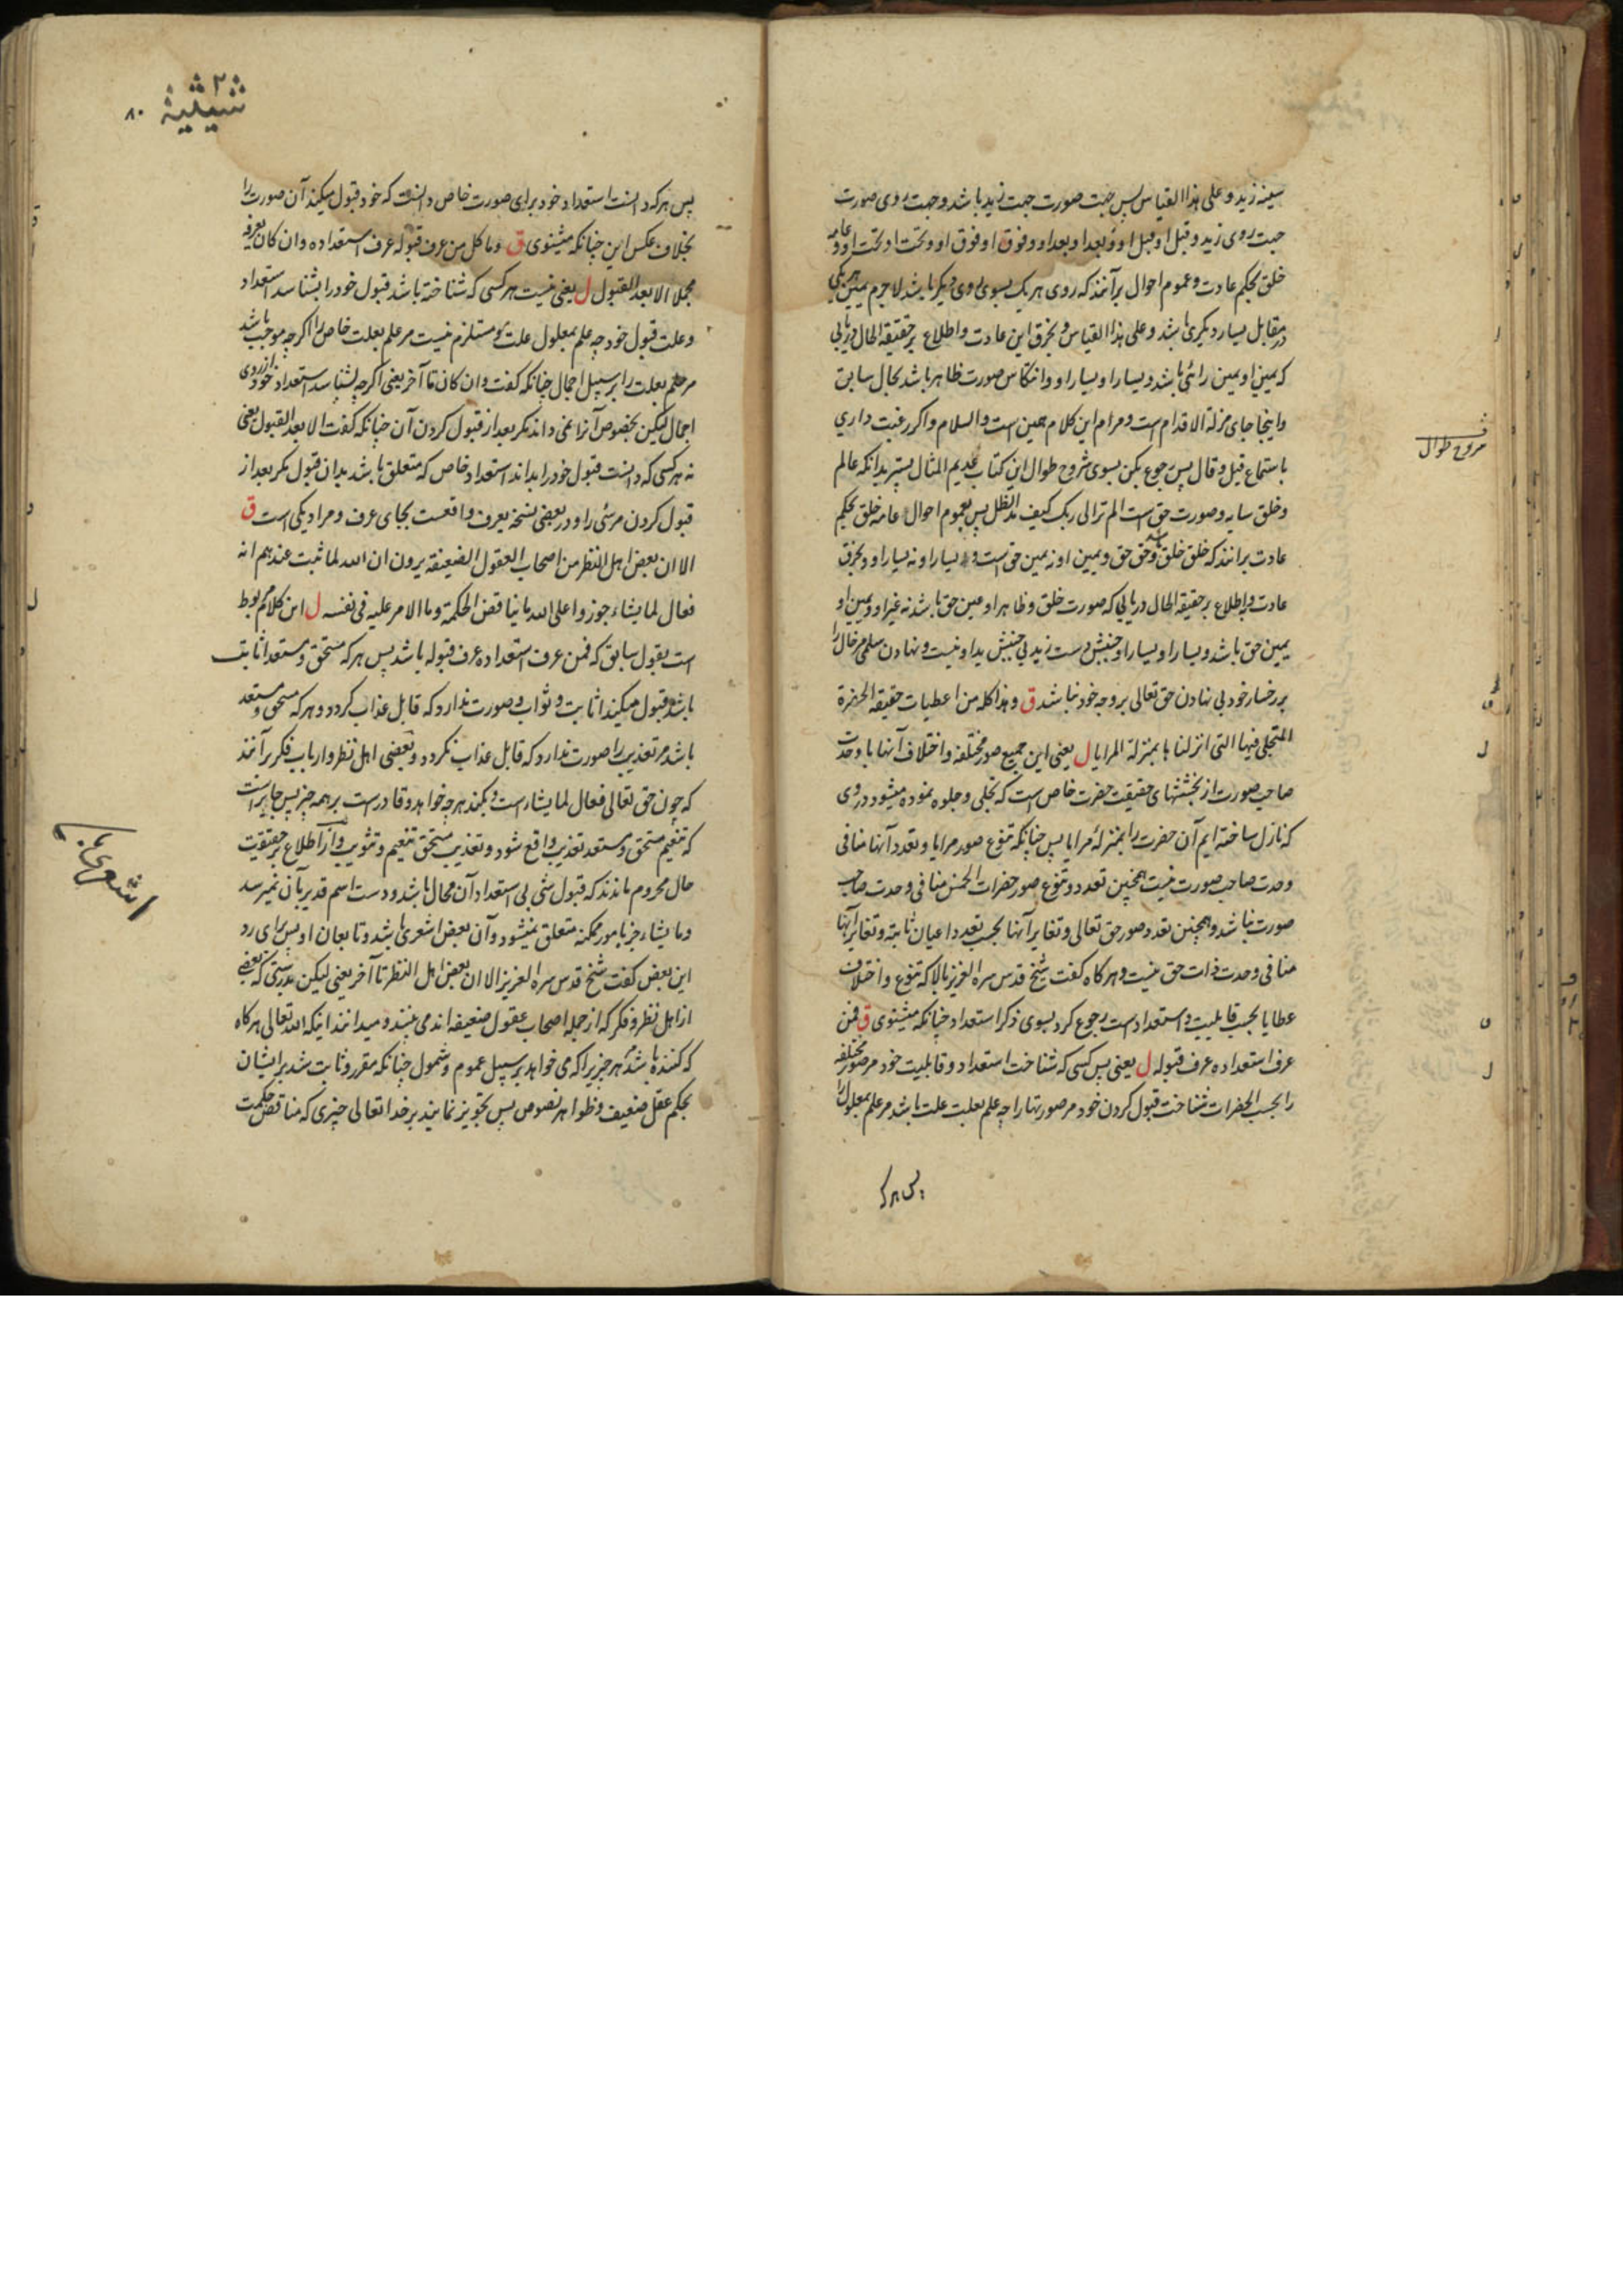 سینه زید و علی هذا القیاس پس جهت صورت جهت زید باشد و جهت روی صورت
جهت روی زید و قبل او قبل او و بعد او بعد او و فوق او فوق او و تحت او تحت او و عامه
خلق بحکم عادت و عموم احوال برآنند که روی هر یک بسوی روی دیگر باشد لاجرم یمین هر یکی
در مقابل یسار دیگری باشد و علی هذا القیاس و بخرق این عادت و اطلاع بر حقیقة الحال دریابی
که یمین او یمین رائی باشد و یسار او یسار او و انتکاس صورت ظاهر باشد بحال سابق
و اینجا جای مزلة الاقدام است و مرام این کلام همین است والسلام و اگر رغبت داری
باستماع قیل و قال پس رجوع بکن بسوی شروح طوال این کتاب عدیم المثال بستر بدانکه عالم
و خلق سایه و صورت حق است الم تر الی ربک کیف مد الظل پس بعموم احوال عامه خلق بحکم
عادت برانند که خلق خلق است و حق حق و یمین او نه یمین حق است و یسار او نه یسار او و بخرق
عادت و اطلاع بر حقیقة الحال دریابی که صورت خلق و ظاهر او عین حق باشد نه غیر او و یمین او
یمین حق باشد و یسار او یسار او و جنبش دست زید بی جنبش ید او نیست و نهادن سلمی مر خال را
بر رخسار خود بی نهادن حق تعالی بر وجه خود نباشد ق و هذا کله من اعطیات حقیقة الحضرة
المتجلی فیها التی انزلناها بمنزلة المرایا ل یعنی این جمیع صور مختلفه و اختلاف آنها با وحدت
صاحب صورت از بخششهای حقیقت حضرت خاص است که تجلی و جلوه نموده میشود در وی
که نازل ساخته ایم آن حضرت را بمنزلهٔ مرایا پس چنانکه تنوع صور مرایا و تعدد آنها منافی
وحدت صاحب صورت نیست همچنین تعدد و تنوع صور حضرات الخمس منافی وحدت صاحب
صورت نباشد و همچنین تعدد صور حق تعالی و تغایر آنها بحسب تعدد اعیان ثابته و تغایر آنها
منافی وحدت ذات حق نیست و هرگاه گفت شیخ قدس سره العزیز بالا که تنوع و اختلاف
عطایا بحسب قابلیت و استعداد است رجوع کرد بسوی ذکر استعداد چنانکه میشنوی ق فمن
عرف استعداده عرف قبوله ل یعنی پس کسی که شناخت استعداد و قابلیت خود مر صور مختلفه
را بحسب الحضرات شناخت قبول کردن خود مر صورتها را چه علم بعلت علت باشد مر علم بمعلول را
پس هر که
شروح طوال
شیثیة
۲
۸۰
پس هر که دانست استعداد خود برای صورت خاص دانست که خود قبول میکند آن صورت را
بخلاف عکس این چنانکه میشنوی ق و ما کل من عرف قبوله عرف استعداده و ان کان یعرفه
مجملا الا بعد القبول ل یعنی نیست هر کسی که شناخته باشد قبول خود را بشناسد استعداد
و علت قبول خود چه علم بمعلول علت و مستلزم نیست مر علم بعلت خاص را اگرچه موجب باشد
مر علم بعلت را بر سبیل اجمال چنانکه گفت و ان کان تا آخر یعنی اگرچه بشناسد استعداد خود از روی
اجمال لیکن بخصوص آنرا نمی داند مگر بعد از قبول کردن آن چنانکه گفت الا بعد القبول یعنی
نه هر کسی که دانست قبول خود را بداند استعداد خاص که متعلق باشد بدان قبول مگر بعد از
قبول کردن مرشئی را و در بعضی نسخه یعرف واقعست بجای عرف و مراد یکی است ق
الا ان بعض اهل النظر من اصحاب العقول الضعیفة یرون ان الله لما ثبت عندهم انه
فعال لما یشاء جوزوا علی الله ما یناقض الحکمة وما الامر علیه فی نفسه ل این کلام مربوط
است بقول سابق که فمن عرف استعداده عرف قبوله باشد پس هر که مستحق و مستعد اثابت
باشد قبول میکند اثابت و ثواب و صورت ندارد که قابل عذاب گردد و هر که مستحق و مستعد
باشد مر تعذیب را صورت ندارد که قابل عذاب نگردد و بعضی اهل نظر و ارباب فکر برآنند
که چون حق تعالی فعال لما یشاء است و بکند هرچه خواهد و قادر است بر همه چیز پس جایز است
که تنعیم مستحق و مستعد تعذیب واقع شود و تعذیب مستحق تنعیم و تثویب و از اطلاع بر حقیقت
حال محروم ماندند که قبول شئ بی استعداد آن محال باشد و دست اسم قدیر بآن نمیرسد
و ما یشاء جز بامور ممکنه متعلق نمیشود و آن بعض اشعری باشد و تابعان او پس برای رد
این بعض گفت شیخ قدس سره العزیز الا ان بعض اهل النظر تا آخر یعنی لیکن بدرستی که بعضی
از اهل نظر و فکر که از جمله اصحاب عقول ضعیفه اند می بینند و میدانند اینکه الله تعالی هرگاه
که کننده باشد مر هر چیز را که می خواهد بر سبیل عموم و شمول چنانکه مقرر و ثابت شد بر ایشان
بحکم عقل ضعیف و ظواهر نصوص پس تجویز نمایند بر خدا تعالی چیزی که مناقض حکمت